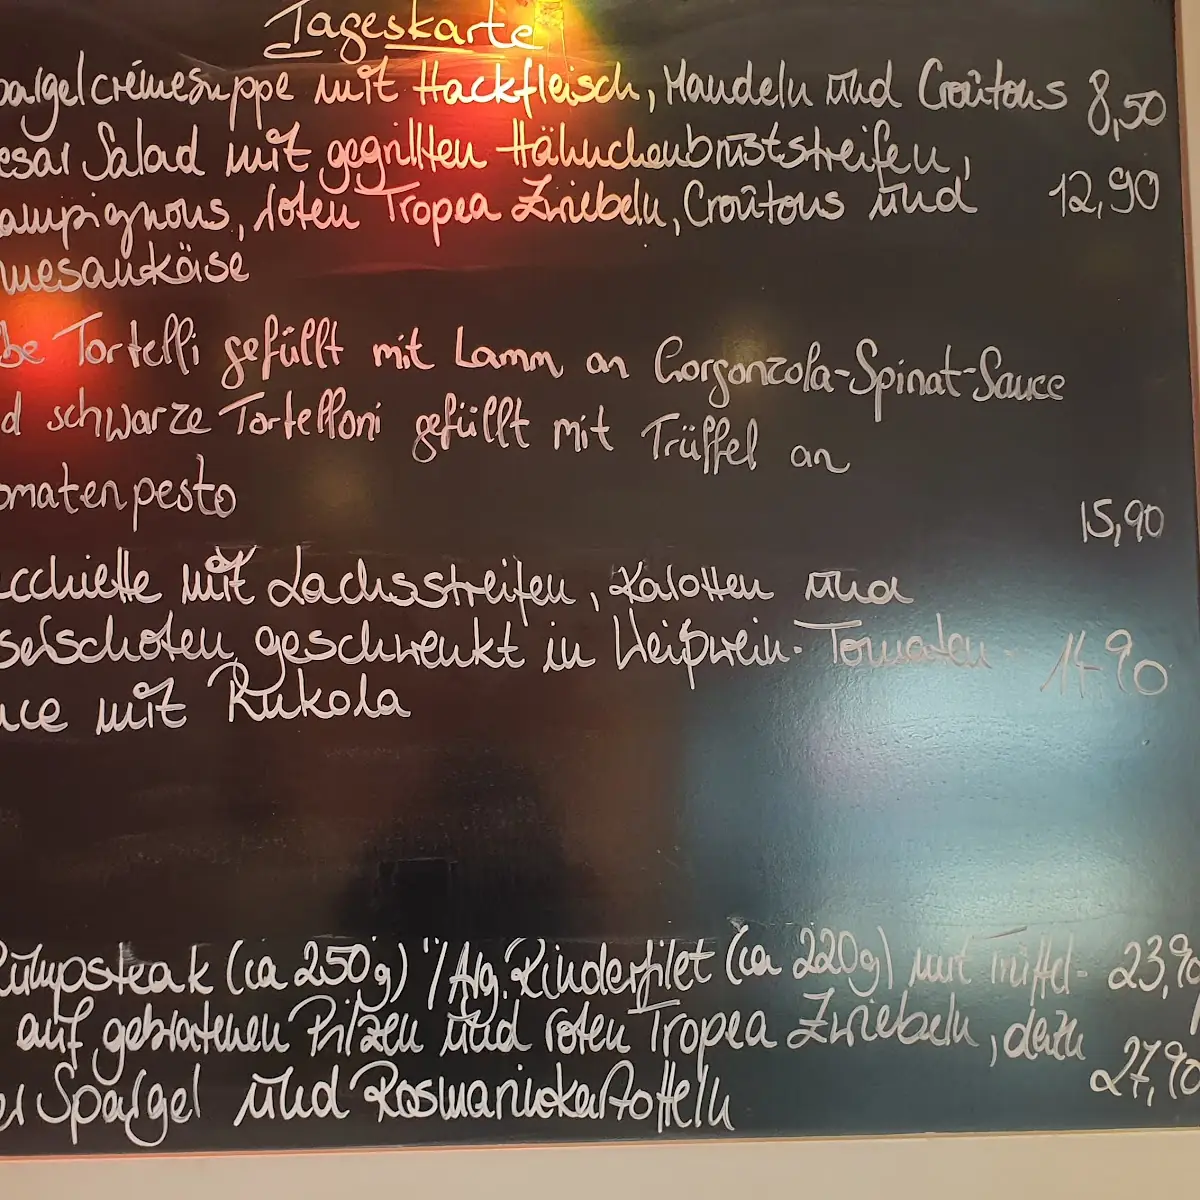 Tageskarte
pargelcrémesuppe mit Hackfleisch, Mandeln und Croûtons 8,50
esar Salad mit gegrillten Hähnchenbruststreifen,
ampignons, roten Tropea Zwiebeln, Croûtons und 12,90
mesankäse
be Tortelli gefüllt mit Lamm an Gorgonzola-Spinat-Sauce
d schwarze Tortelloni gefüllt mit Trüffel an
omatenpesto
15,90
ecchiette mit Lachsstreifen, Karotten und
selschoten geschwenkt in Weißwein-Tomaten- 14,90
uce mit Rukola
Rumpsteak (ca 250g) "/Arg. Rinderfilet (ca 220g) mit Trüffel- 23,90
auf gebratenen Pilzen und roten Tropea Zwiebeln, dazu
27,90
er Spargel und Rosmarinkartoffeln